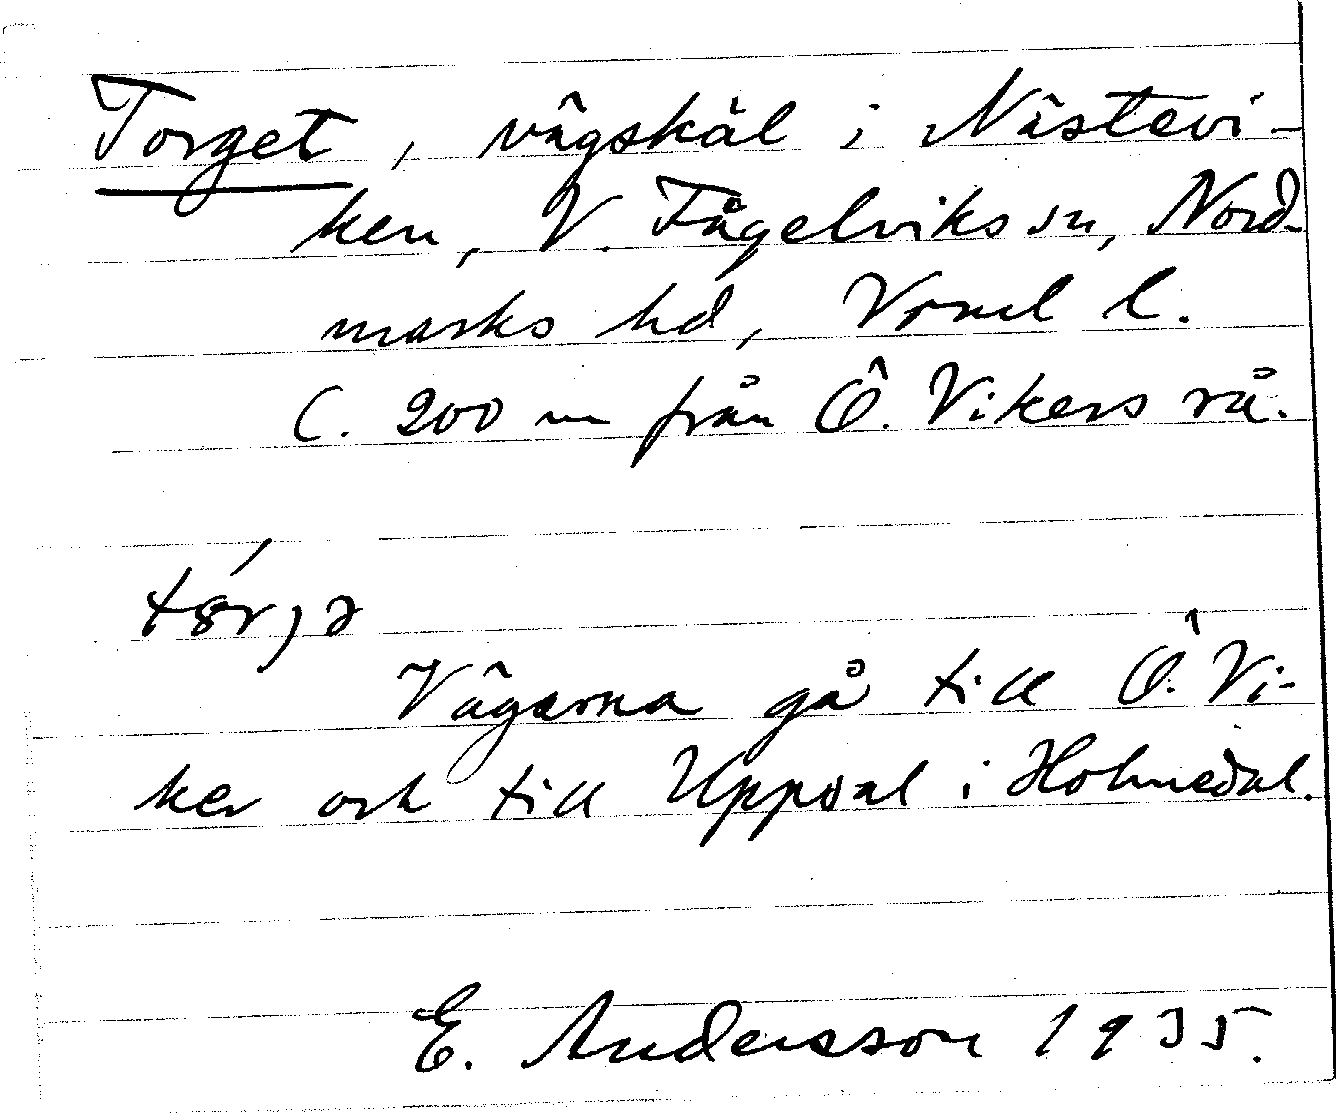 Torget, vägskäl i Nästevi-
ken, V. Fågelviks sn, Nord-
marks hd, Vrml l.
C. 200 m från Ö. Vikers rå.
Vägarna gå till Ö. Vi-
ker och till Uppsal i Holmedal.
E. Andersson 1935.